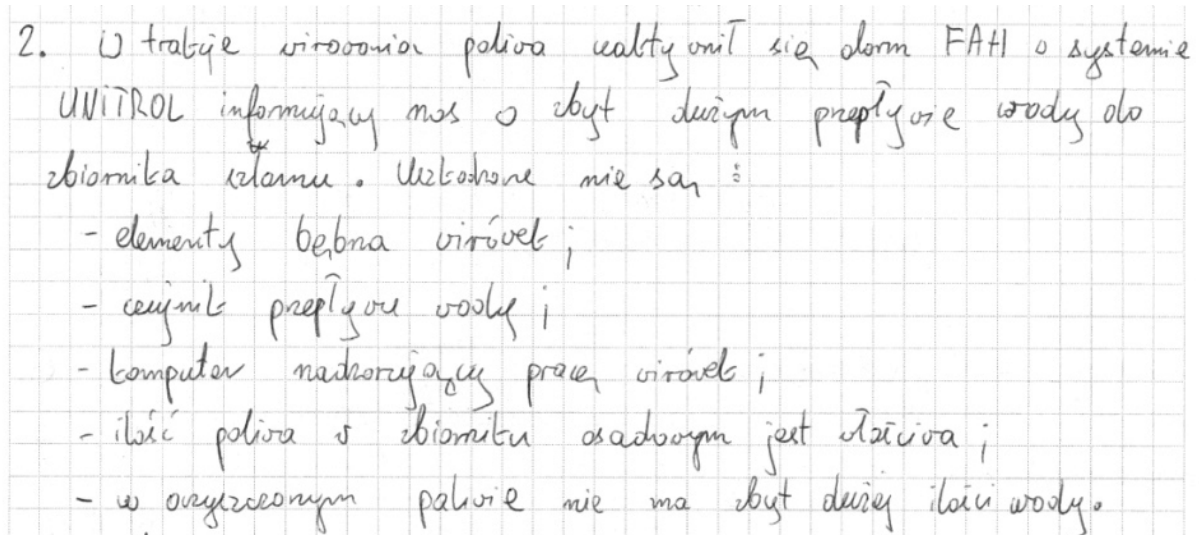 2. W trakcie wirowania paliwa uaktywnił się alarm FAH o systemie
UNITROL informujący nas o zbyt dużym przepływie wody do
zbiornika szlamu. Uszkodzone nie są :
- elementy bębna wirówek ;
- czujnik przepływu wody ;
- komputer nadzorujący pracę wirówek ;
- ilość paliwa w zbiorniku osadowym jest właściwa ;
- w oczyszczonym paliwie nie ma zbyt dużej ilości wody.